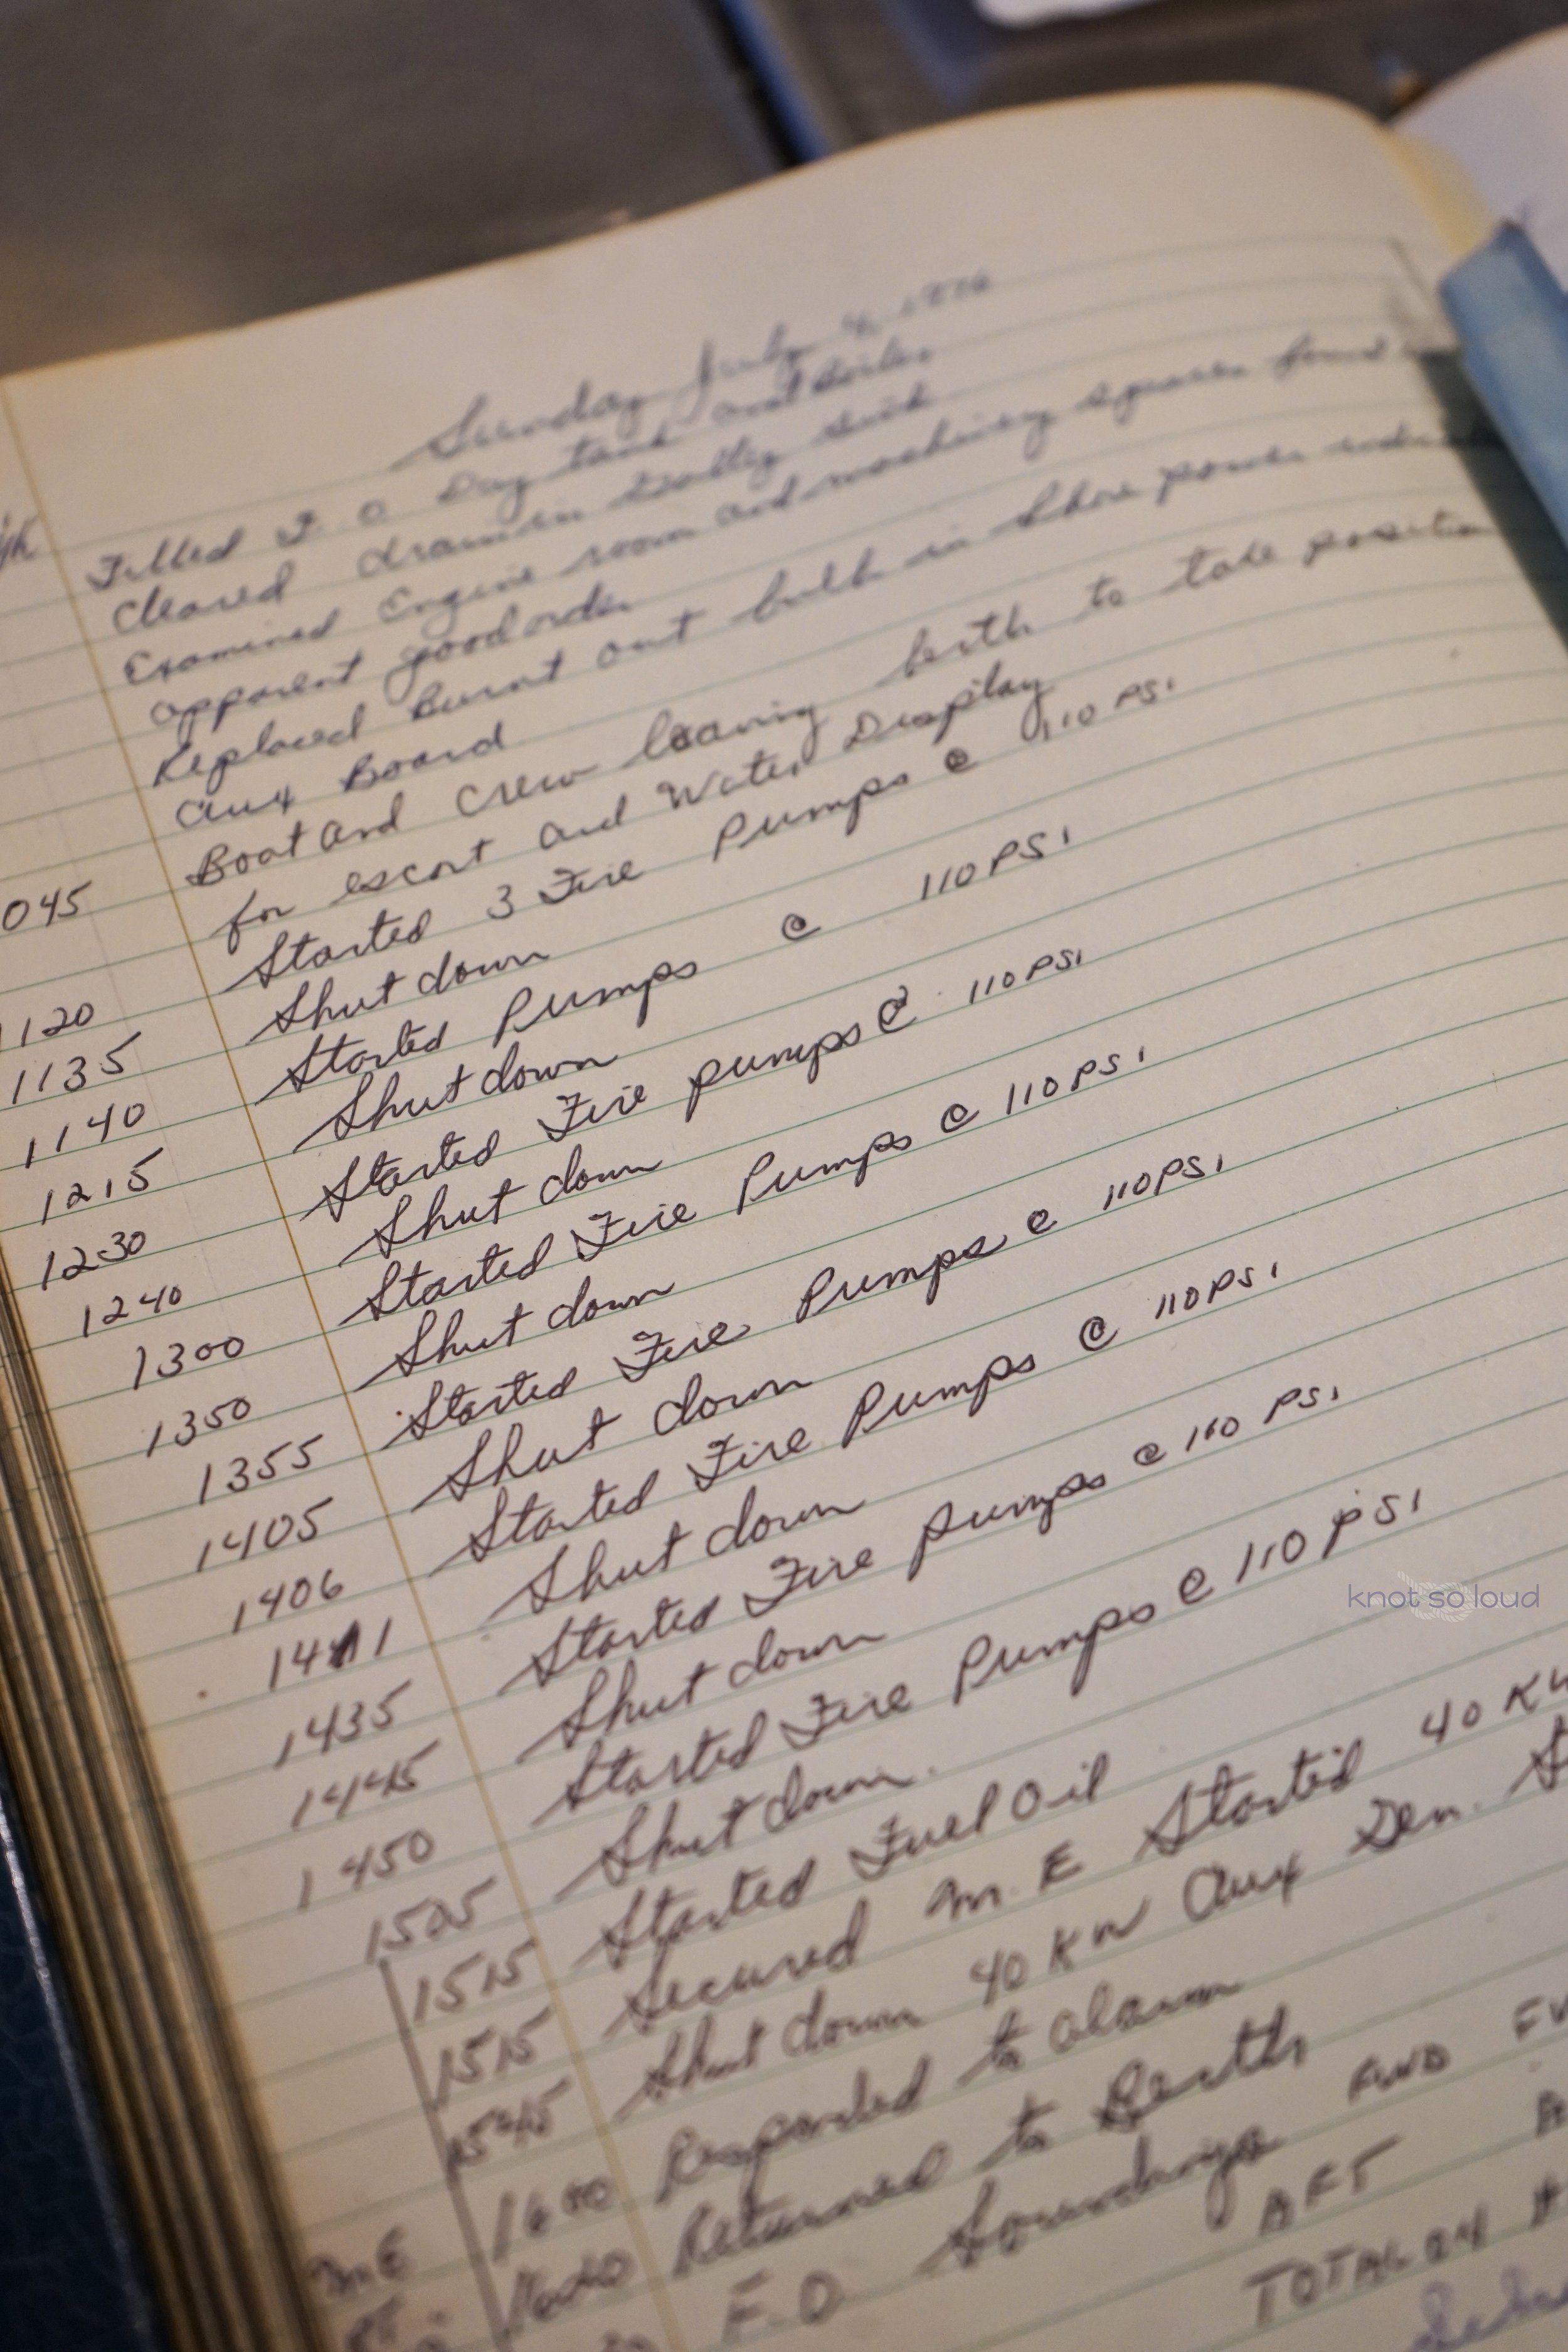 Sunday July 4, 1976
Filled F. O Day tank and boiler
Cleared drain in Galley sink
Examined Engine room and machinery spaces found
apparent good order
Replaced Burnt out bulb in shore power
Aux Board
045 Boat and crew leaving berth to take position
for escort and Water Display
1120 Started 3 Fire Pumps @ 110 PSI
1135 Shut down
1140 Started Pumps @ 110 PSI
1215 Shut down
1230 Started Fire pumps @ 110 PSI
1240 Shut down
1300 Started Fire Pumps @ 110 PSI
1350 Shut down
1355 Started Fire Pumps @ 110 PSI
1405 Shut down
1406 Started Fire Pumps @ 110 PSI
1411 Shut down
1435 Started Fire pumps @ 110 PSI
1445 Shut down
1450 Started Fire Pumps @ 110 PSI
1505 Shut down.
1515 Started Fuel Oil
1515 Secured M. E Started 40 KW
1545 Shut down 40 KW Aux Gen. S
Responded to alarm
M.E Returned to Berth
F.O Soundings FWD
AFT
TOTAL
knot so loud